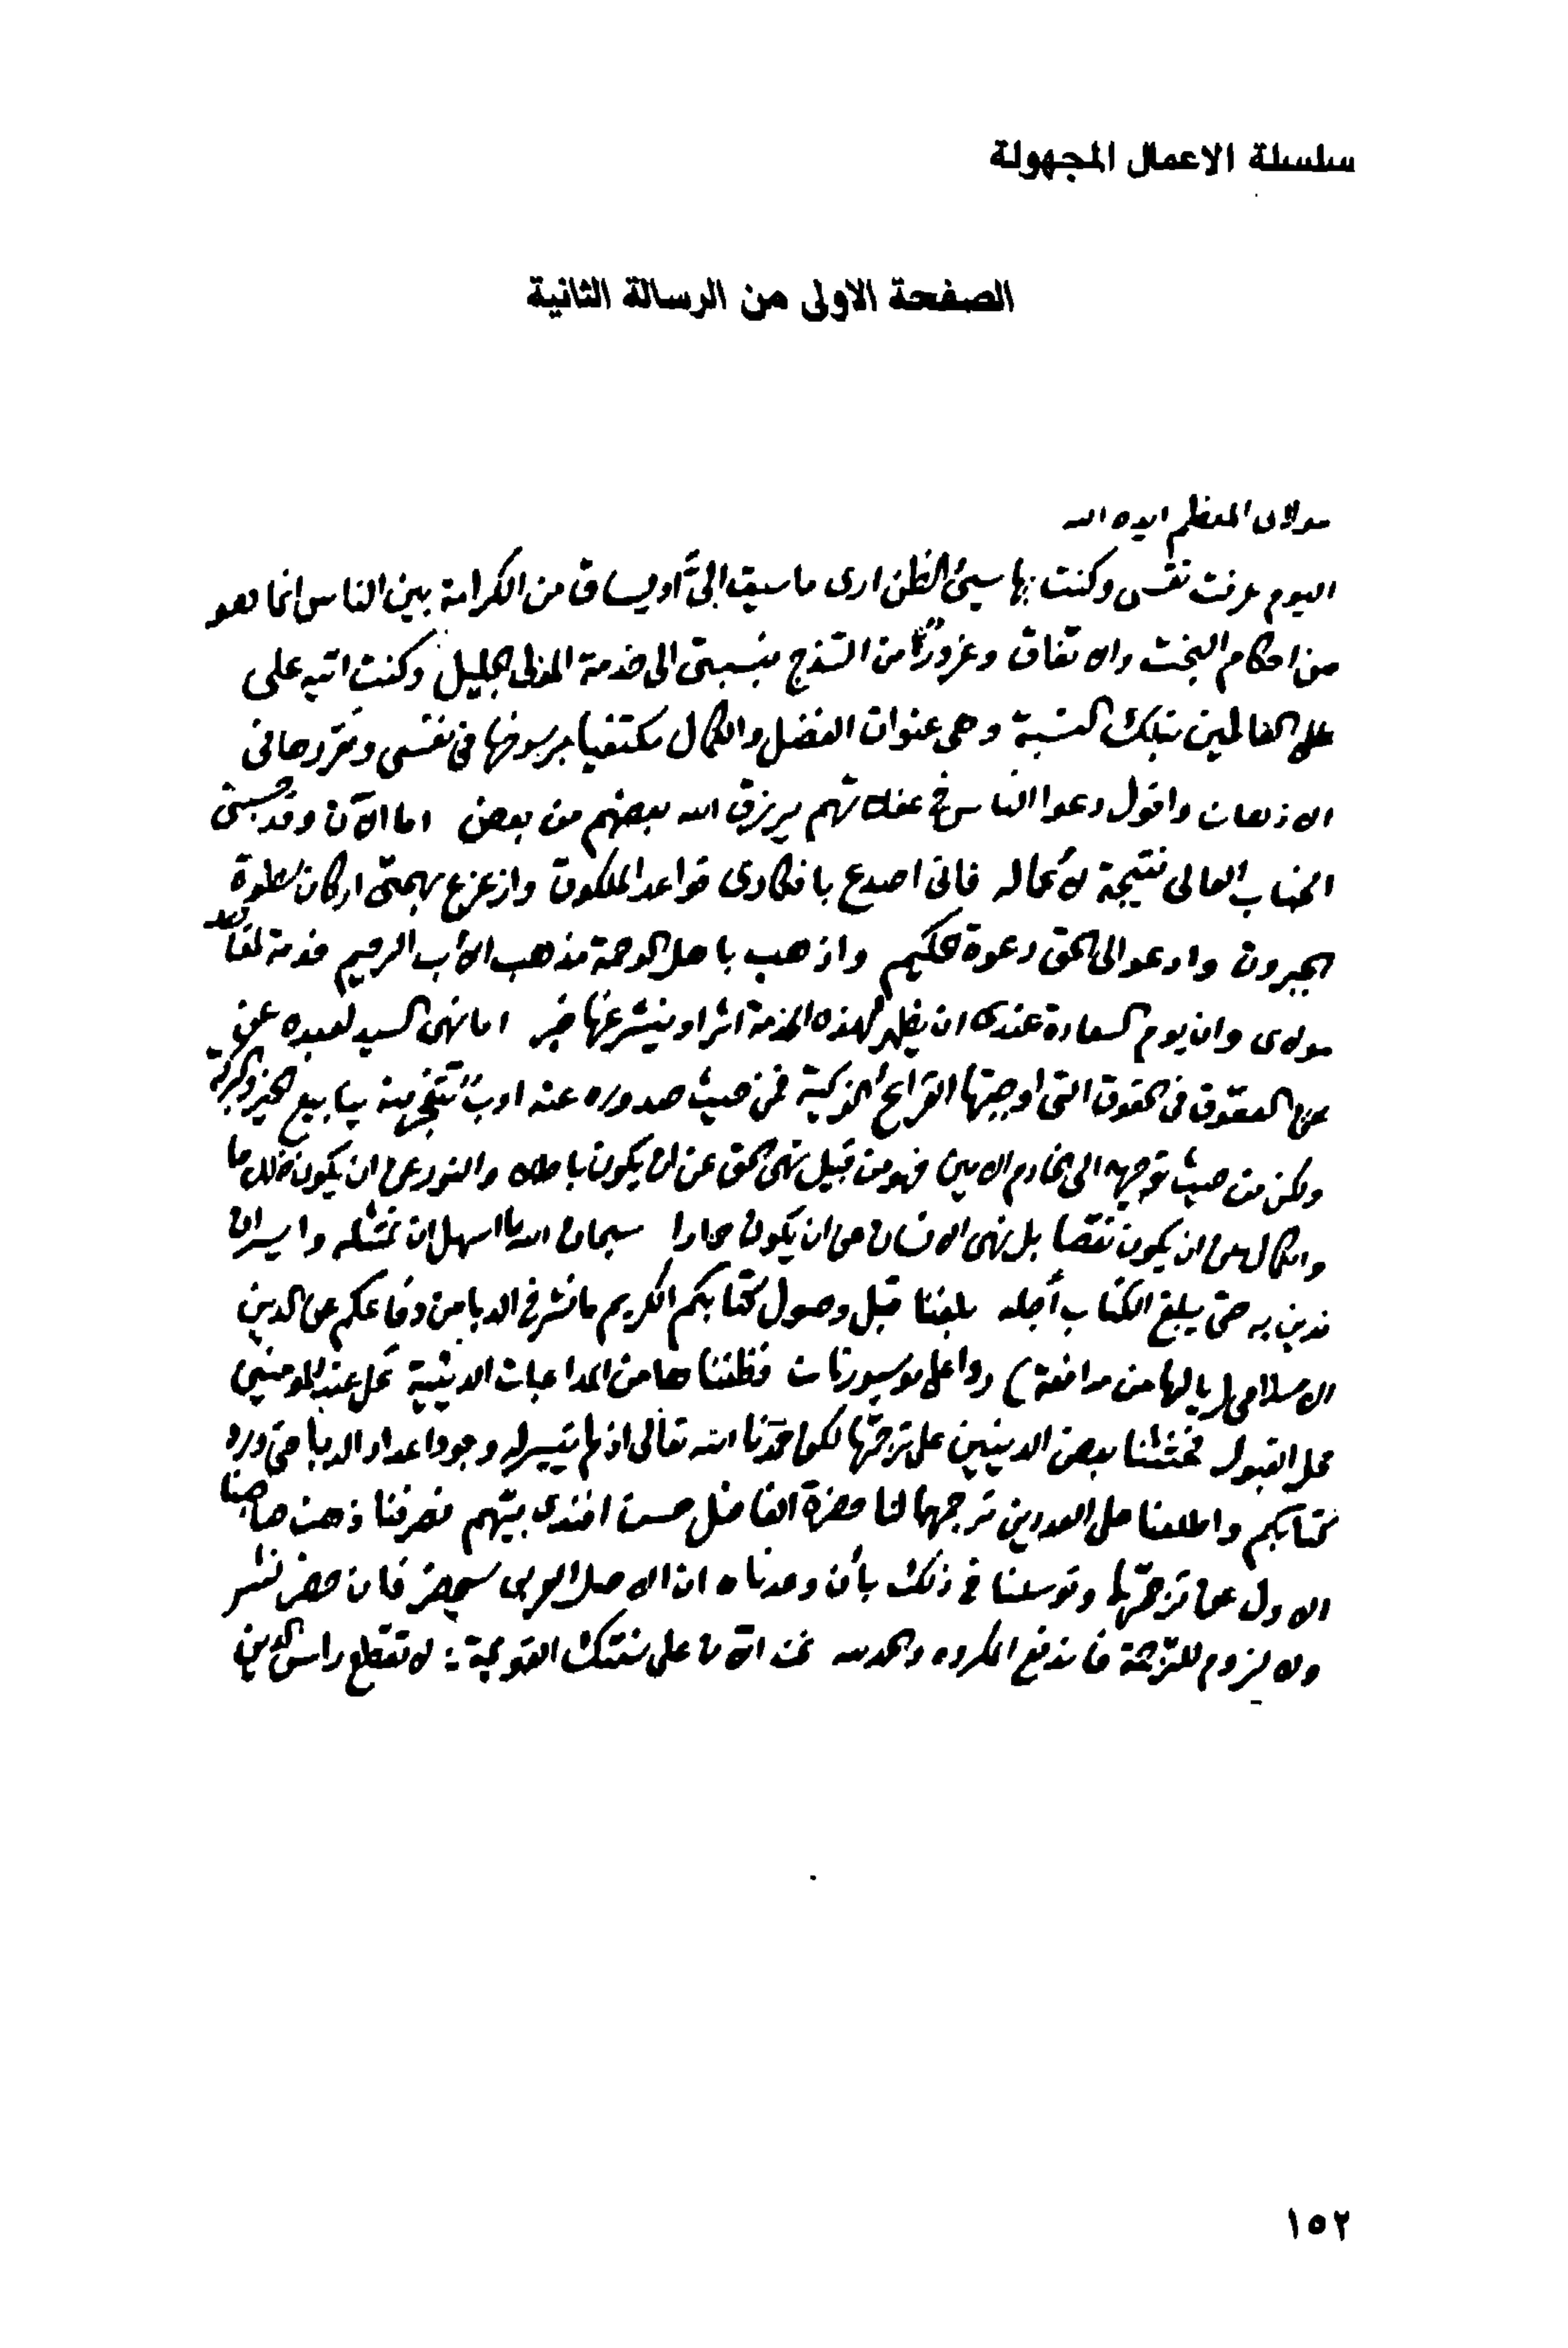 سلسلة الاعمال المجهولة
الصفحة الاولى من الرسالة الثانية
مولاى المعظم ايده الله
اليوم عرفت نفسى وكنت بها سيئ الظن ارى ما سيق الىّ او يساق من الكرامة بين الناس انما هو
من احكام البخت والاتفاق وغرور من السذج بنسبتى الى خدمة المولى الجليل وكنت اتيه على
على العالمين بتلك النسبة وهى عنوان الفضل والكمال مكتفيا برسوخها فى نفسى وتقررها فى
الاذهان واقول دعوا الناس فى غفلاتهم يرزق الله بعضهم من بعض اما الآن وقد حسبنى
الجناب العالى نتيجة لأعماله فانى اصدع بافكارى قواعد الملكوت وازعزع بهمتى اركان سطوة
الجبروت وادعو الى الحق دعوة الحكيم واذهب باهل الرحمة مذهب الأب الرحيم خدمة لمقاصد
مولاى وان يوم السعادة عندى ان يظهر لهذه الخدمة اثر او ينشر عنها خبر اما نهى السيد لعبده عن
عن العقوق فى الحقوق التى اوجبتها القرائح الزكية فمن حيث صدوره عنه ادبٌ تتفجر منه ينابيع الخير والبركة
ولكن من حيث توجيهه الى الخادم الامين فهو من قبيل نهى الحق عن ان يكون باطلا والنور عن ان يكون ظلاما
والكمال عن ان يكون نقصا بل نهى الانسان عن ان يكون حمارا سبحان الله ما اسهل ان نمتثله وايسر ان
ندين به حتى يبلغ الكتاب أجله بلغنا قبل وصول كتابكم الكريم ما نشر فى الديبا من دفاعكم عن الدين
الاسلامى (يا لها من مدافعة) ردا على موسيو رنان فظنناها من المداعبات الدينية تحل عند المؤمنين
محل القبول فحثثنا بعض الدينيين على ترجمتها لكن حمدنا الله تعالى اذ لم يتيسر له وجود اعداد الديبا حتى ورد
كتابكم واطلعنا على العددين ترجمهما لنا حضرة الفاضل حسن افندى بيهم فصرفنا ذهن صاحبنا
الاول عن ترجمتها وتوسلنا فى ذلك بأن وعدناه ان الاصل العربى سيحضر فان حضر نشر
ولا لزوم للترجمة فاندفع المكروه والحمد لله نحن الآن على سنتك القويمة : لا تقطع راس الدين
١٥٢